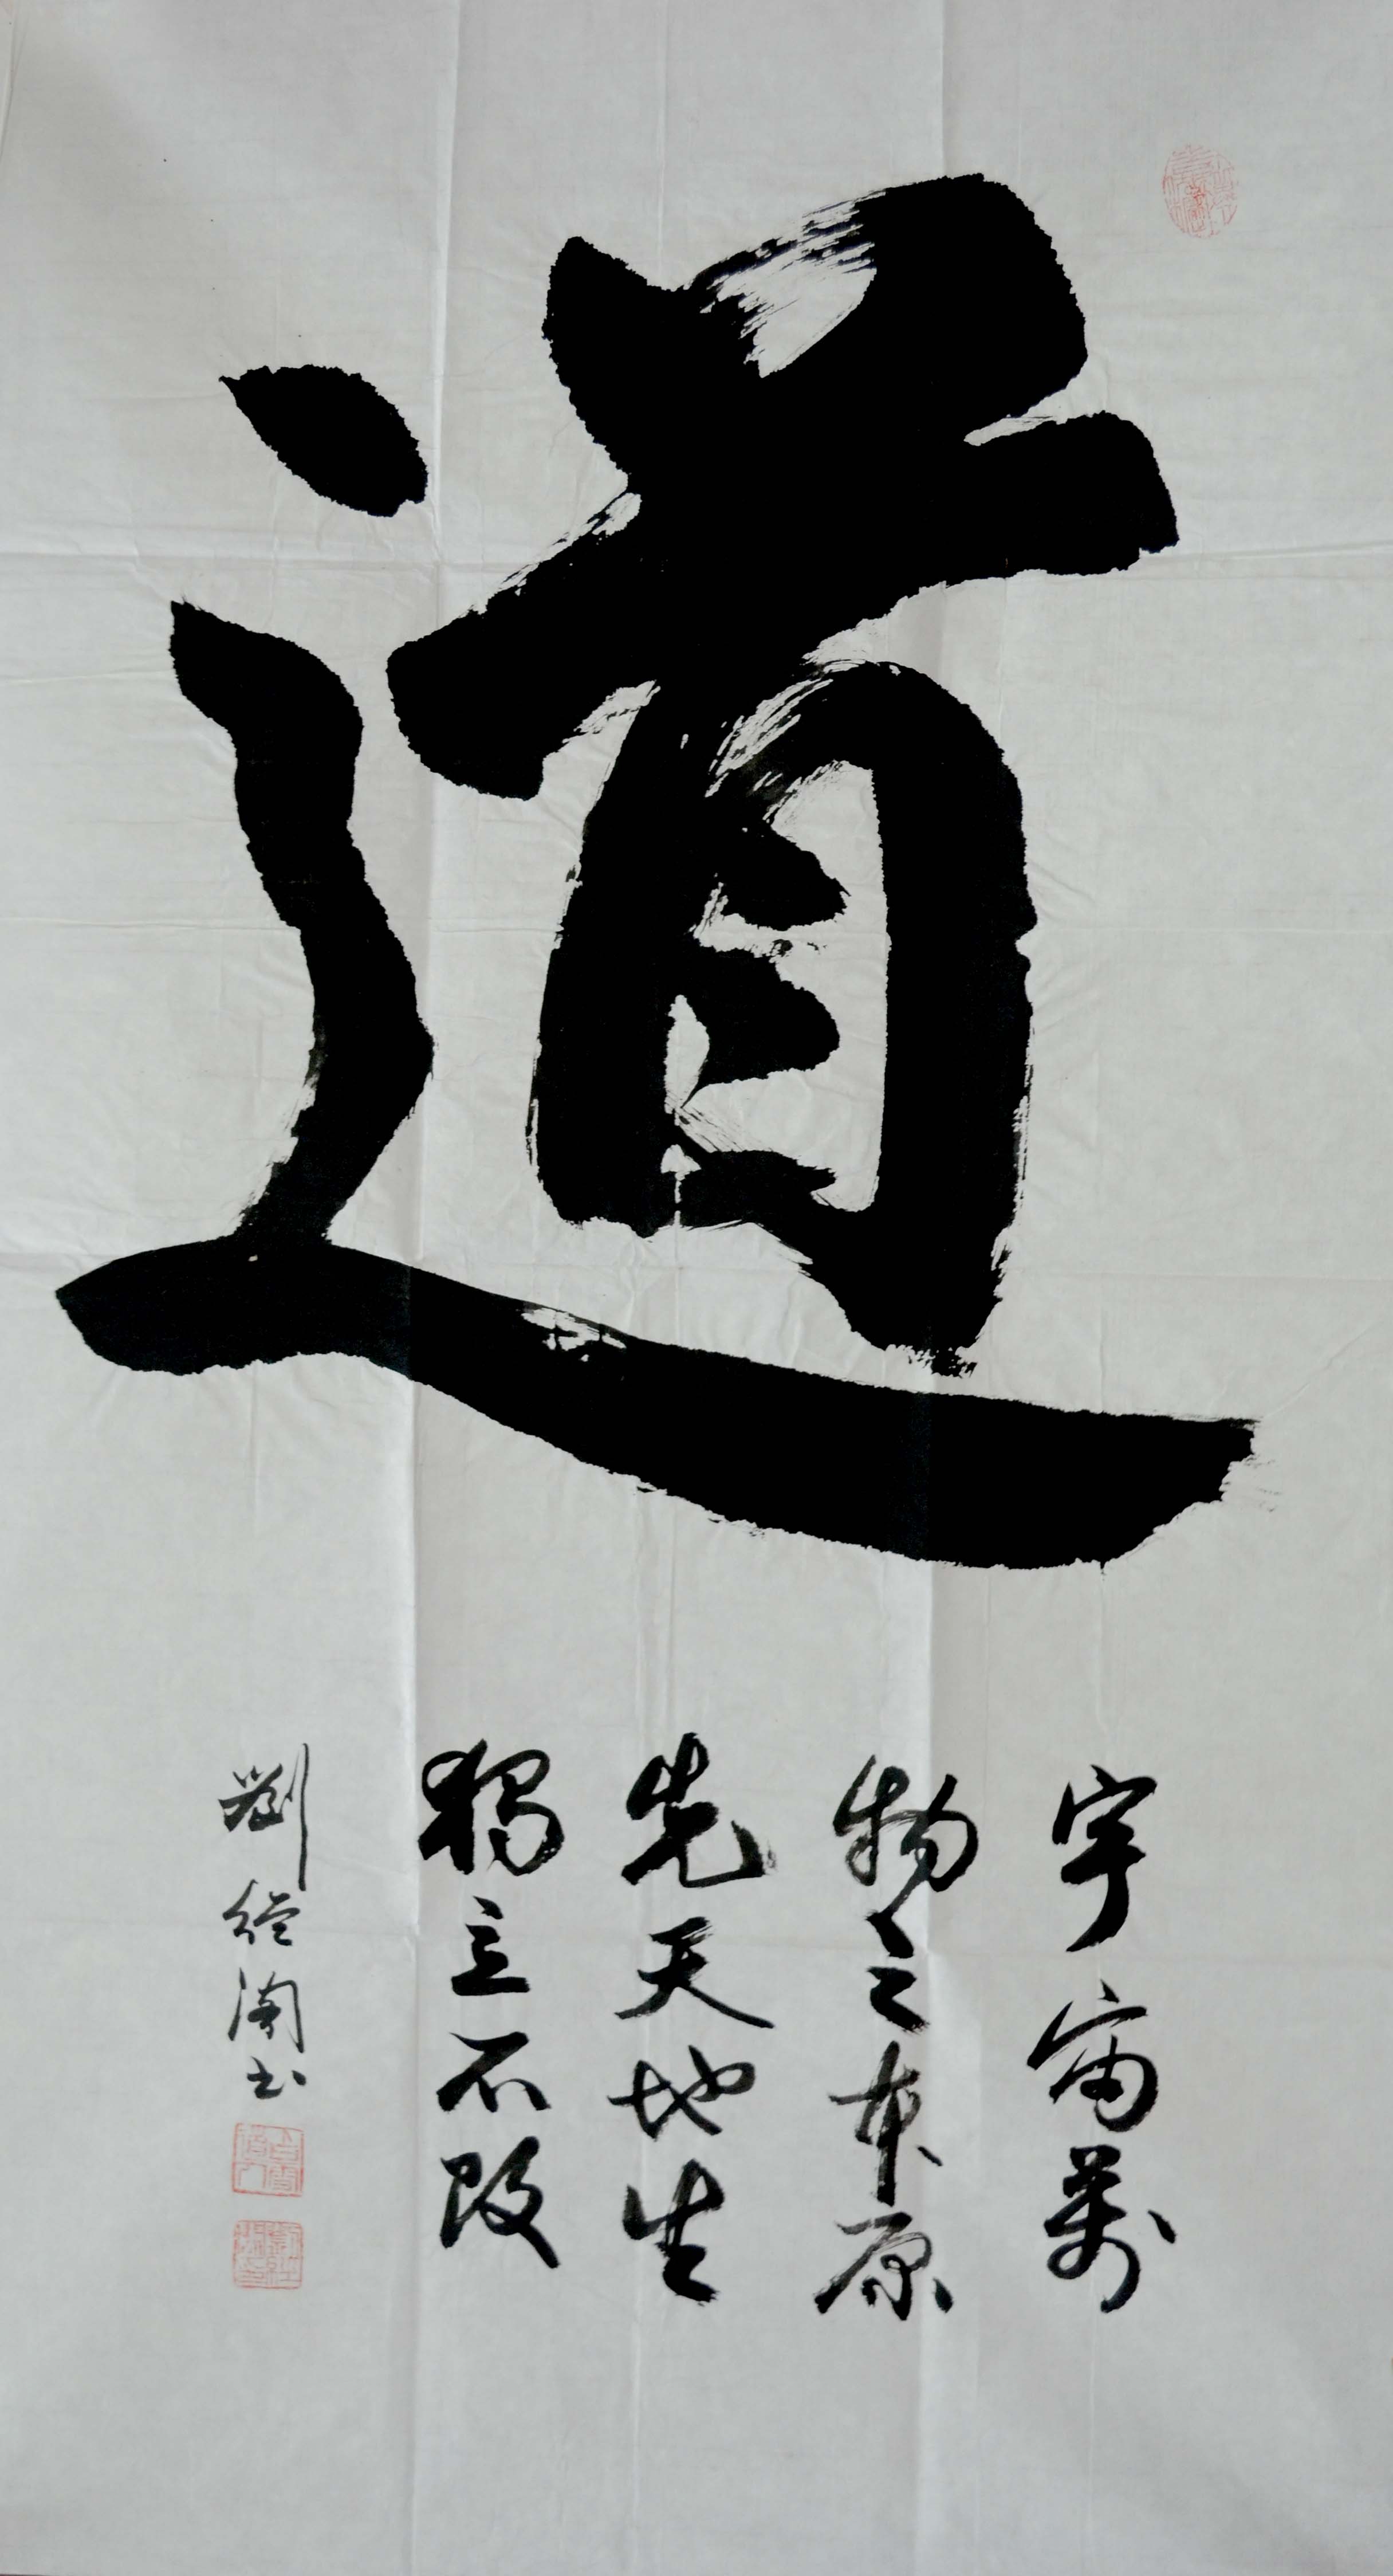 道
宇宙萬
物之本原
先天地生
獨立不改
劉經瀾书